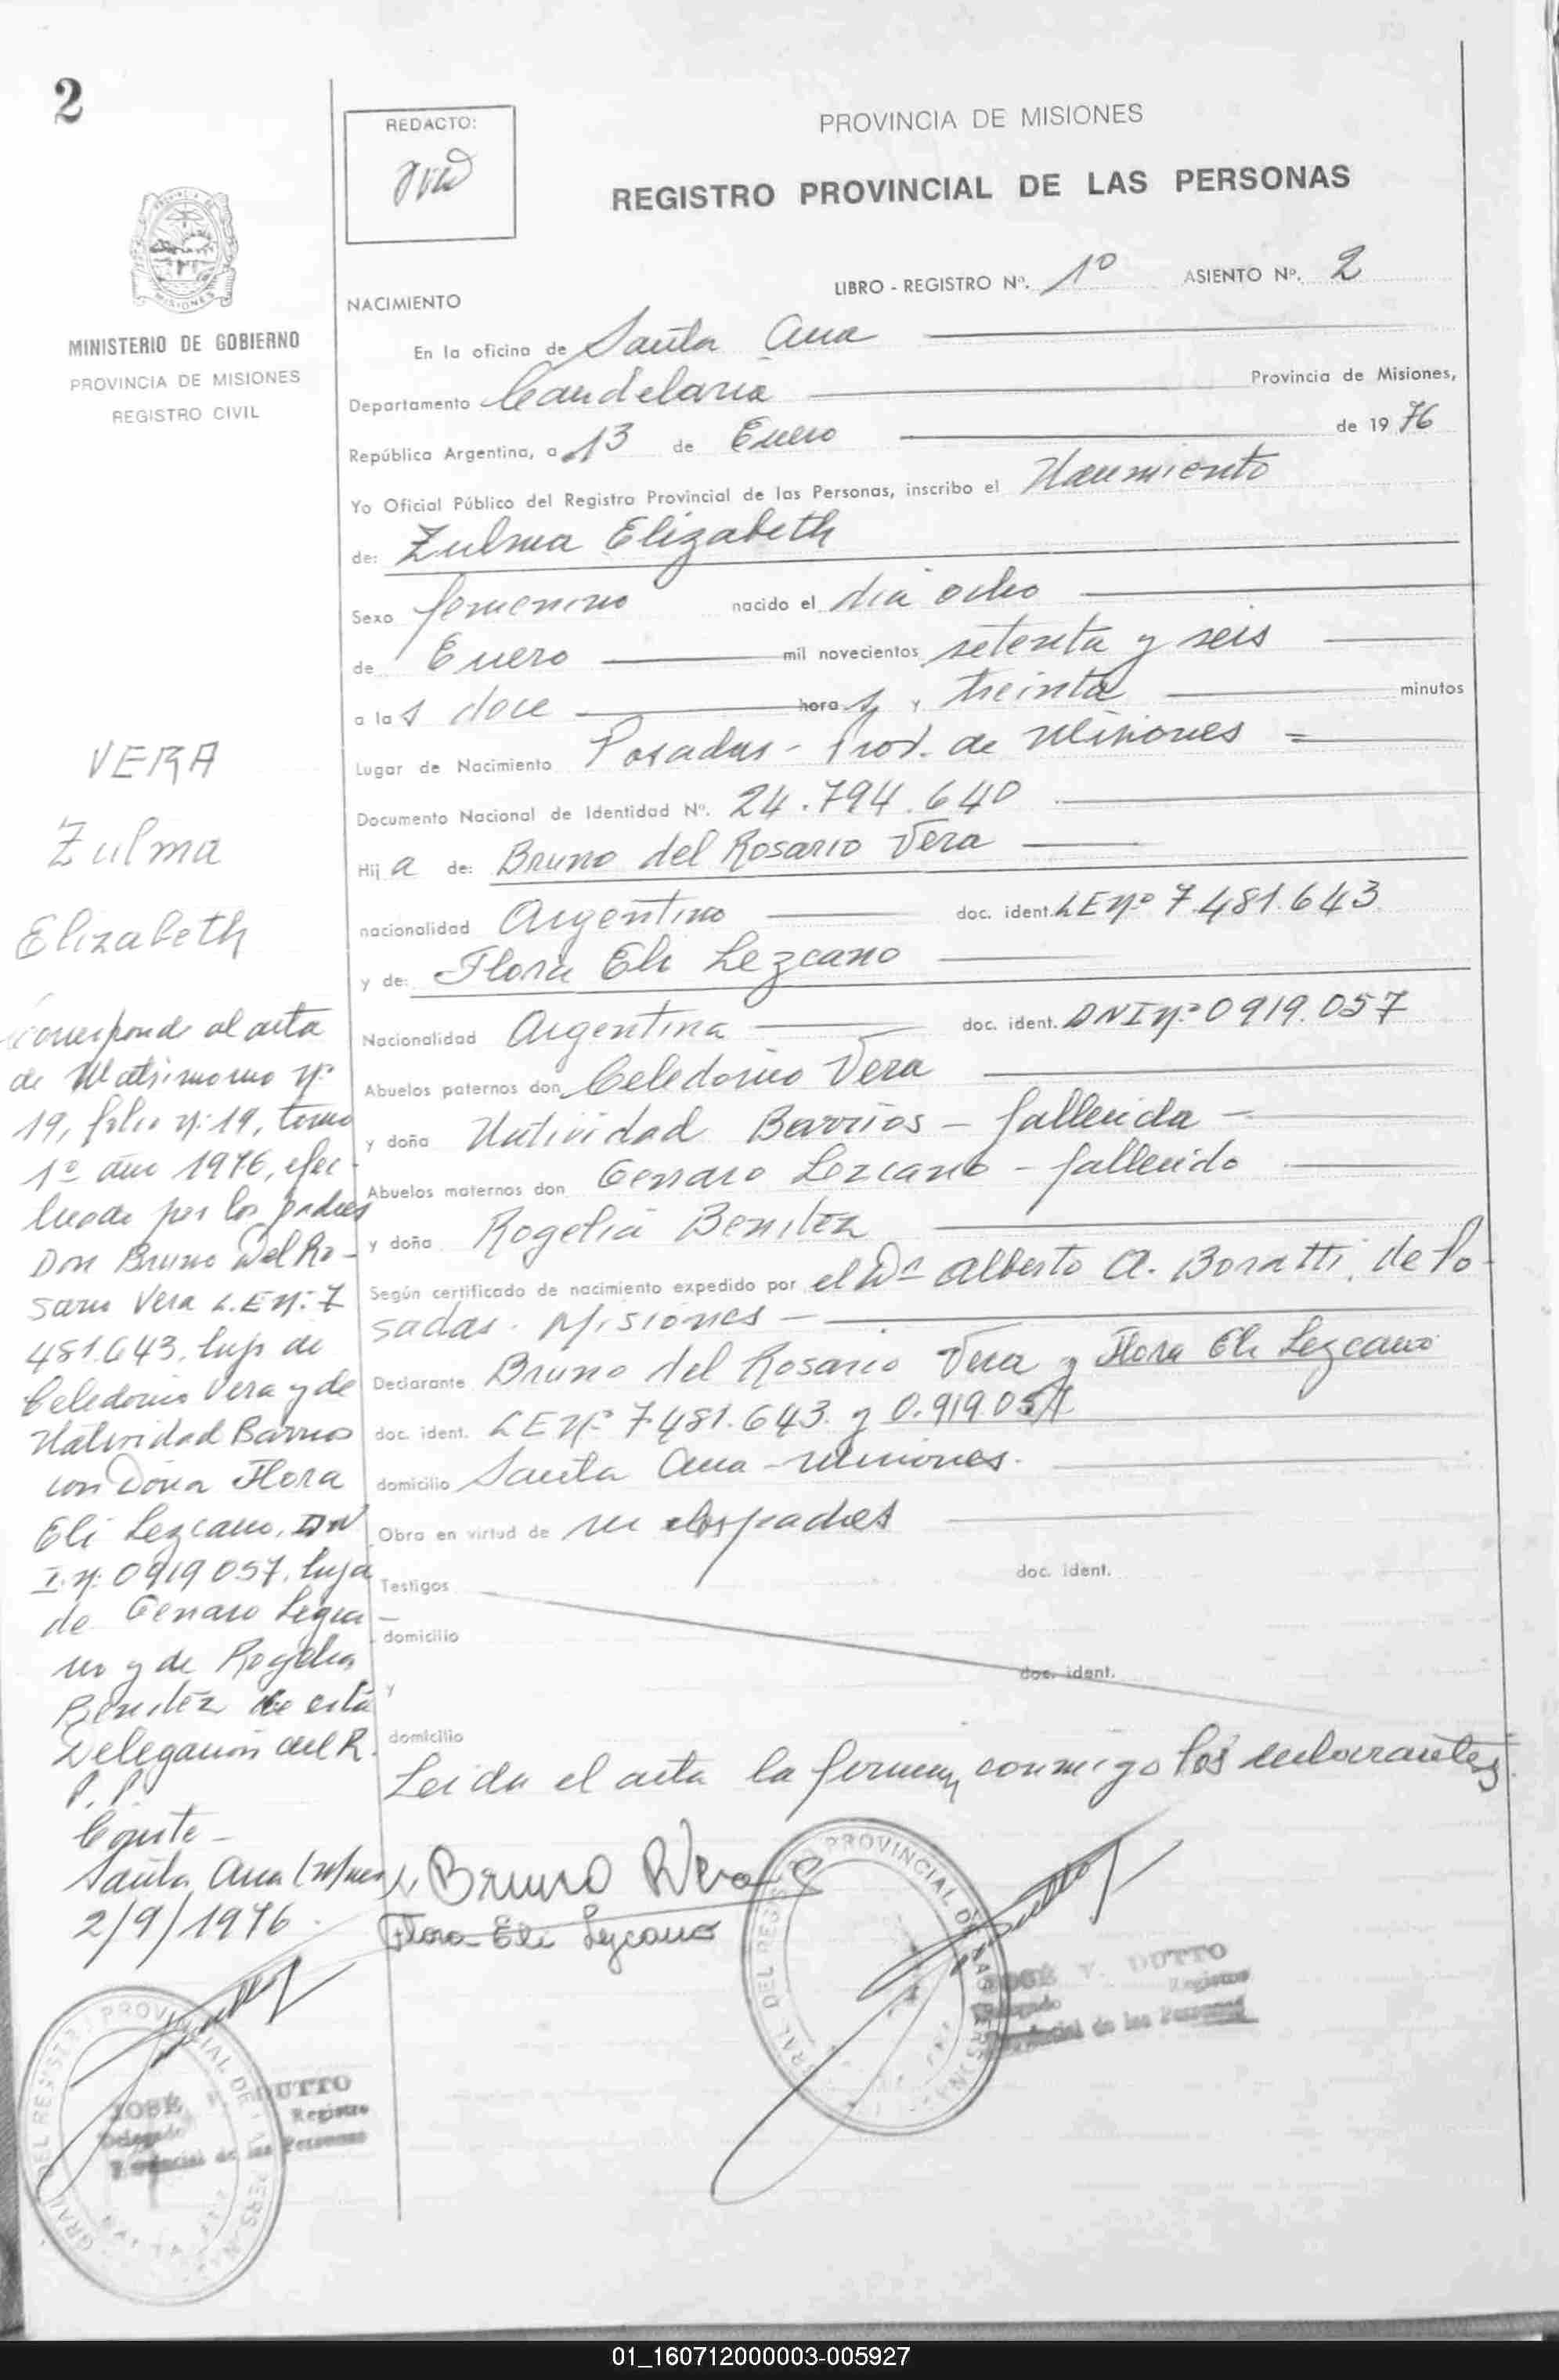 2
REDACTO:
PROVINCIA DE MISIONES
REGISTRO PROVINCIAL DE LAS PERSONAS
LIBRO - REGISTRO Nº. 1º ASIENTO Nº. 2
NACIMIENTO
En la oficina de Santa Ana
Departamento Candelaria Provincia de Misiones,
República Argentina, a 13 de Enero de 1976
Yo Oficial Público del Registro Provincial de las Personas, inscribo el Nacimiento
de: Zulma Elizabeth
Sexo femenino nacido el día ocho
de Enero mil novecientos setenta y seis
a las doce horas y treinta minutos
Lugar de Nacimiento Posadas - Prov. de Misiones
Documento Nacional de Identidad Nº. 24.794.640
Hija de: Bruno del Rosario Vera
nacionalidad Argentino doc. ident. LE Nº 7.481.643
y de: Flora Eli Lezcano
Nacionalidad Argentina doc. ident. DNI Nº 0919.057
Abuelos paternos don Celedonio Vera
y doña Natividad Barrios - fallecida -
Abuelos maternos don Genaro Lezcano - fallecido
y doña Rogelia Benitez
Según certificado de nacimiento expedido por el Dr Alberto A. Boratti, de Po-
sadas. Misiones -
Declarante Bruno del Rosario Vera y Flora Eli Lezcano
doc. ident. LE Nº 7.481.643. y 0.919.057
domicilio Santa Ana - Misiones.
Obra en virtud de ser los padres
doc. ident.
Testigos
domicilio
doc. ident.
y
domicilio
Leida el acta la firman conmigo los
Bruno R Vera
Flora Eli Lezcano
GRAL DEL REGISTRO PROVINCIAL DE LAS PERSONAS
JOSÉ V. DUTTO
Delegado Registro
Provincial de las Personas
MISIONES
MINISTERIO DE GOBIERNO
PROVINCIA DE MISIONES
REGISTRO CIVIL
VERA
Zulma
Elizabeth
corresponde al acta
de Matrimonio Nº
19, folio Nº 19, tomo
1º año 1976, efec-
tuado por los padres
Don Bruno Del Ro-
sario Vera L.E Nº: 7
481.643, hijo de
Celedonio Vera y de
Natividad Barrios
con Doña Flora
Eli Lezcano, DN
I. Nº: 0919057, hija
de Genaro Lezca-
no y de Rogelia
Benitez de esta
Delegación del R.
P. P.
Conste -
Santa Ana
2/9/1976.
GRAL DEL REGISTRO PROVINCIAL DE LAS PERSONAS
JOSÉ V. DUTTO
Delegado Registro
Provincial de las Personas
01_160712000003-005927